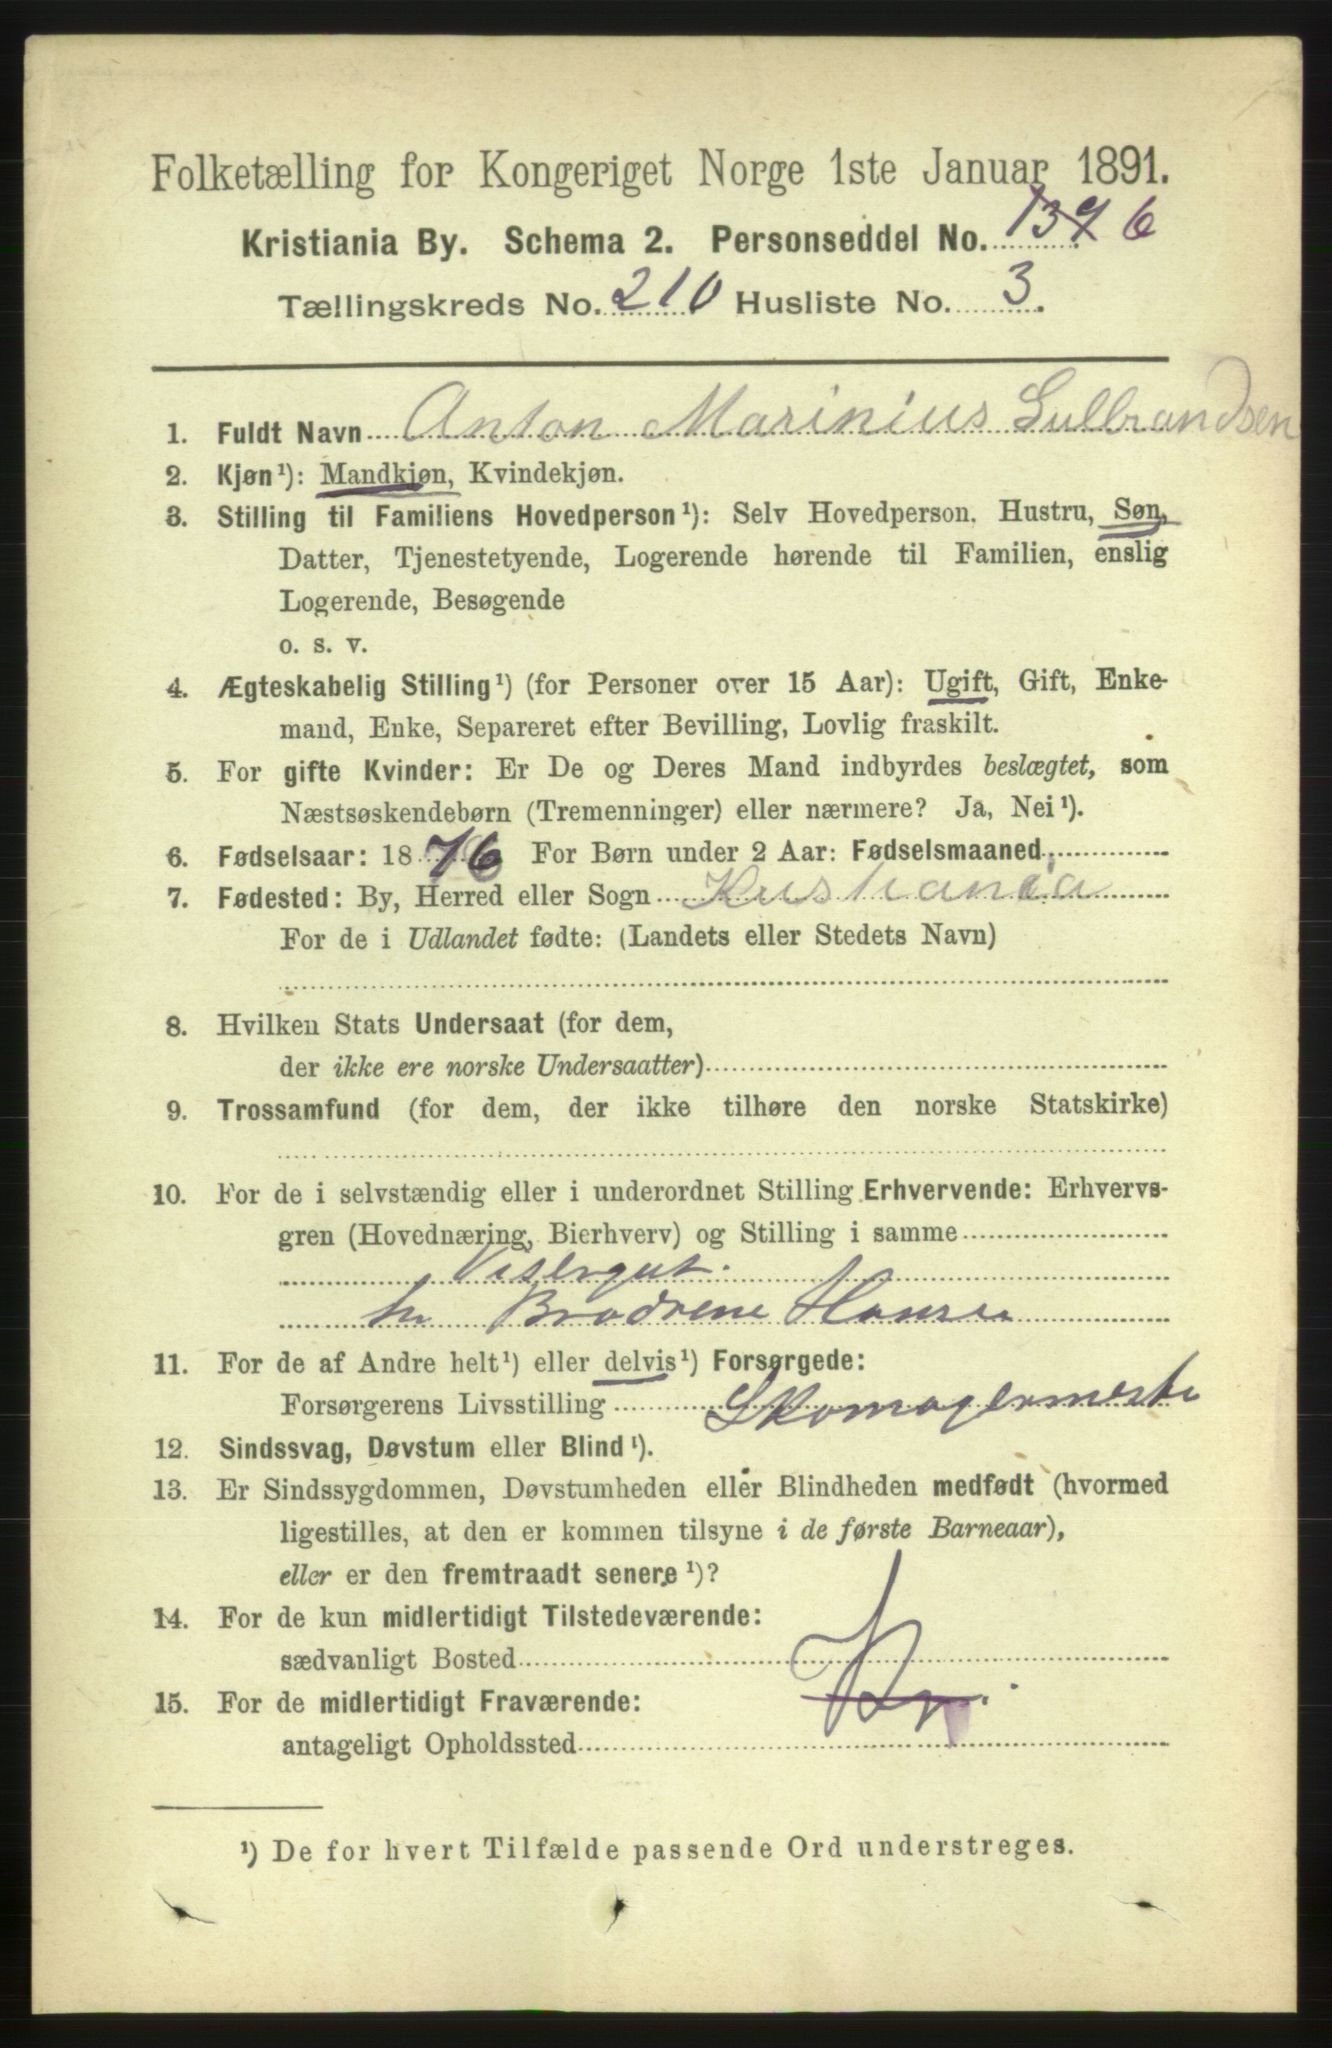 Folketælling for Kongeriget Norge 1ste Januar 1891.
Kristiania By. Schema 2. Personseddel No. 1376
Tællingskreds No. 210 Husliste No. 3.
1. Fuldt Navn Anton Marinius Gulbrandsen
2. Kjøn¹): Mandkjøn, Kvindekjøn.
3. Stilling til Familiens Hovedperson¹): Selv Hovedperson, Hustru, Søn,
Datter, Tjenestetyende, Logerende hørende til Familien, enslig
Logerende, Besøgende
o. s. v.
4. Ægteskabelig Stilling¹) (for Personer over 15 Aar): Ugift, Gift, Enke-
mand, Enke, Separeret efter Bevilling, Lovlig fraskilt.
5. For gifte Kvinder: Er De og Deres Mand indbyrdes beslægtet, som
Næstsøskendebørn (Tremenninger) eller nærmere? Ja, Nei¹).
6. Fødselsaar: 1876 For Børn under 2 Aar: Fødselsmaaned
7. Fødested: By, Herred eller Sogn Kristiania
For de i Udlandet fødte: (Landets eller Stedets Navn)
8. Hvilken Stats Undersaat (for dem,
der ikke ere norske Undersaatter)
9. Trossamfund (for dem, der ikke tilhøre den norske Statskirke)
10. For de i selvstændig eller i underordnet Stilling Erhvervende: Erhvervs-
gren (Hovednæring, Bierhverv) og Stilling i samme
Visergut.
hr Brødrene Hansen
11. For de af Andre helt¹) eller delvis¹) Forsørgede:
Forsørgerens Livsstilling Skomagermester
12. Sindssvag, Døvstum eller Blind¹).
13. Er Sindssygdommen, Døvstumheden eller Blindheden medfødt (hvormed
ligestilles, at den er kommen tilsyne i de første Barneaar),
eller er den fremtraadt senere¹)?
14. For de kun midlertidigt Tilstedeværende:
sædvanligt Bosted
15. For de midlertidigt Fraværende:
antageligt Opholdssted
¹) De for hvert Tilfælde passende Ord understreges.